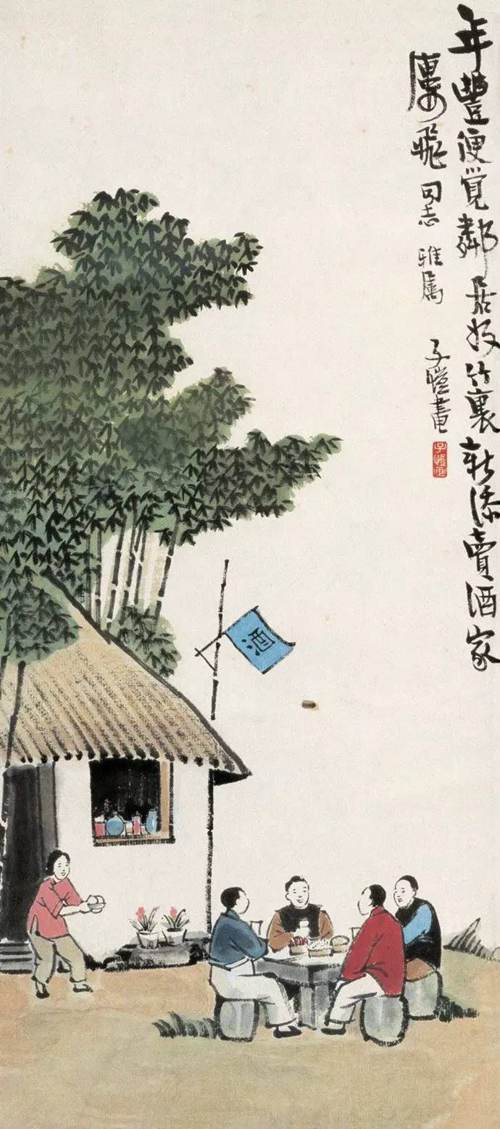 年豐便覺鄰居好竹裏新添賣酒家
飛同志 雅屬
子愷畫
酒